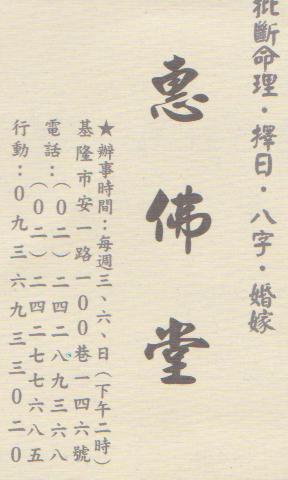 批斷命理・擇日・八字・婚嫁
惠佛堂
★辦事時間：每週三、六、日（下午二時）
基隆市安一路一00巷一四六號
電話：（0二）二四二八九三六八
（0二）二四二七七六八五
行動：0九三六九三三0二0